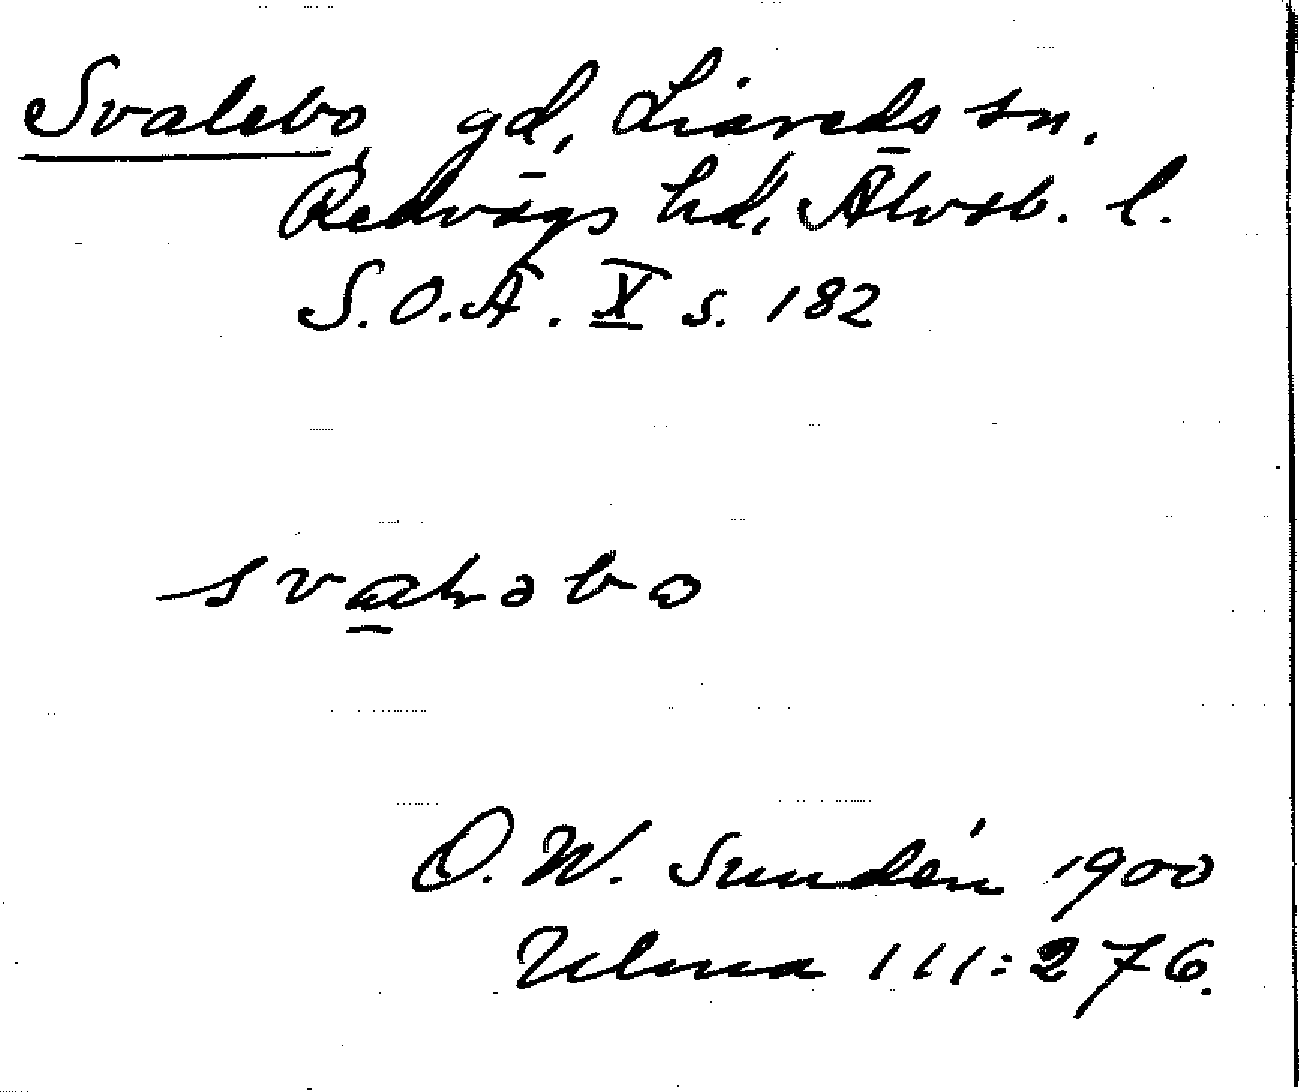 Svalebo, gd, Liareds sn.
Redvägs hd, Älvsb. l.
S.O.Ä. X s. 182
svaləbo
O. W. Sundén 1900
Ulma 111:276.